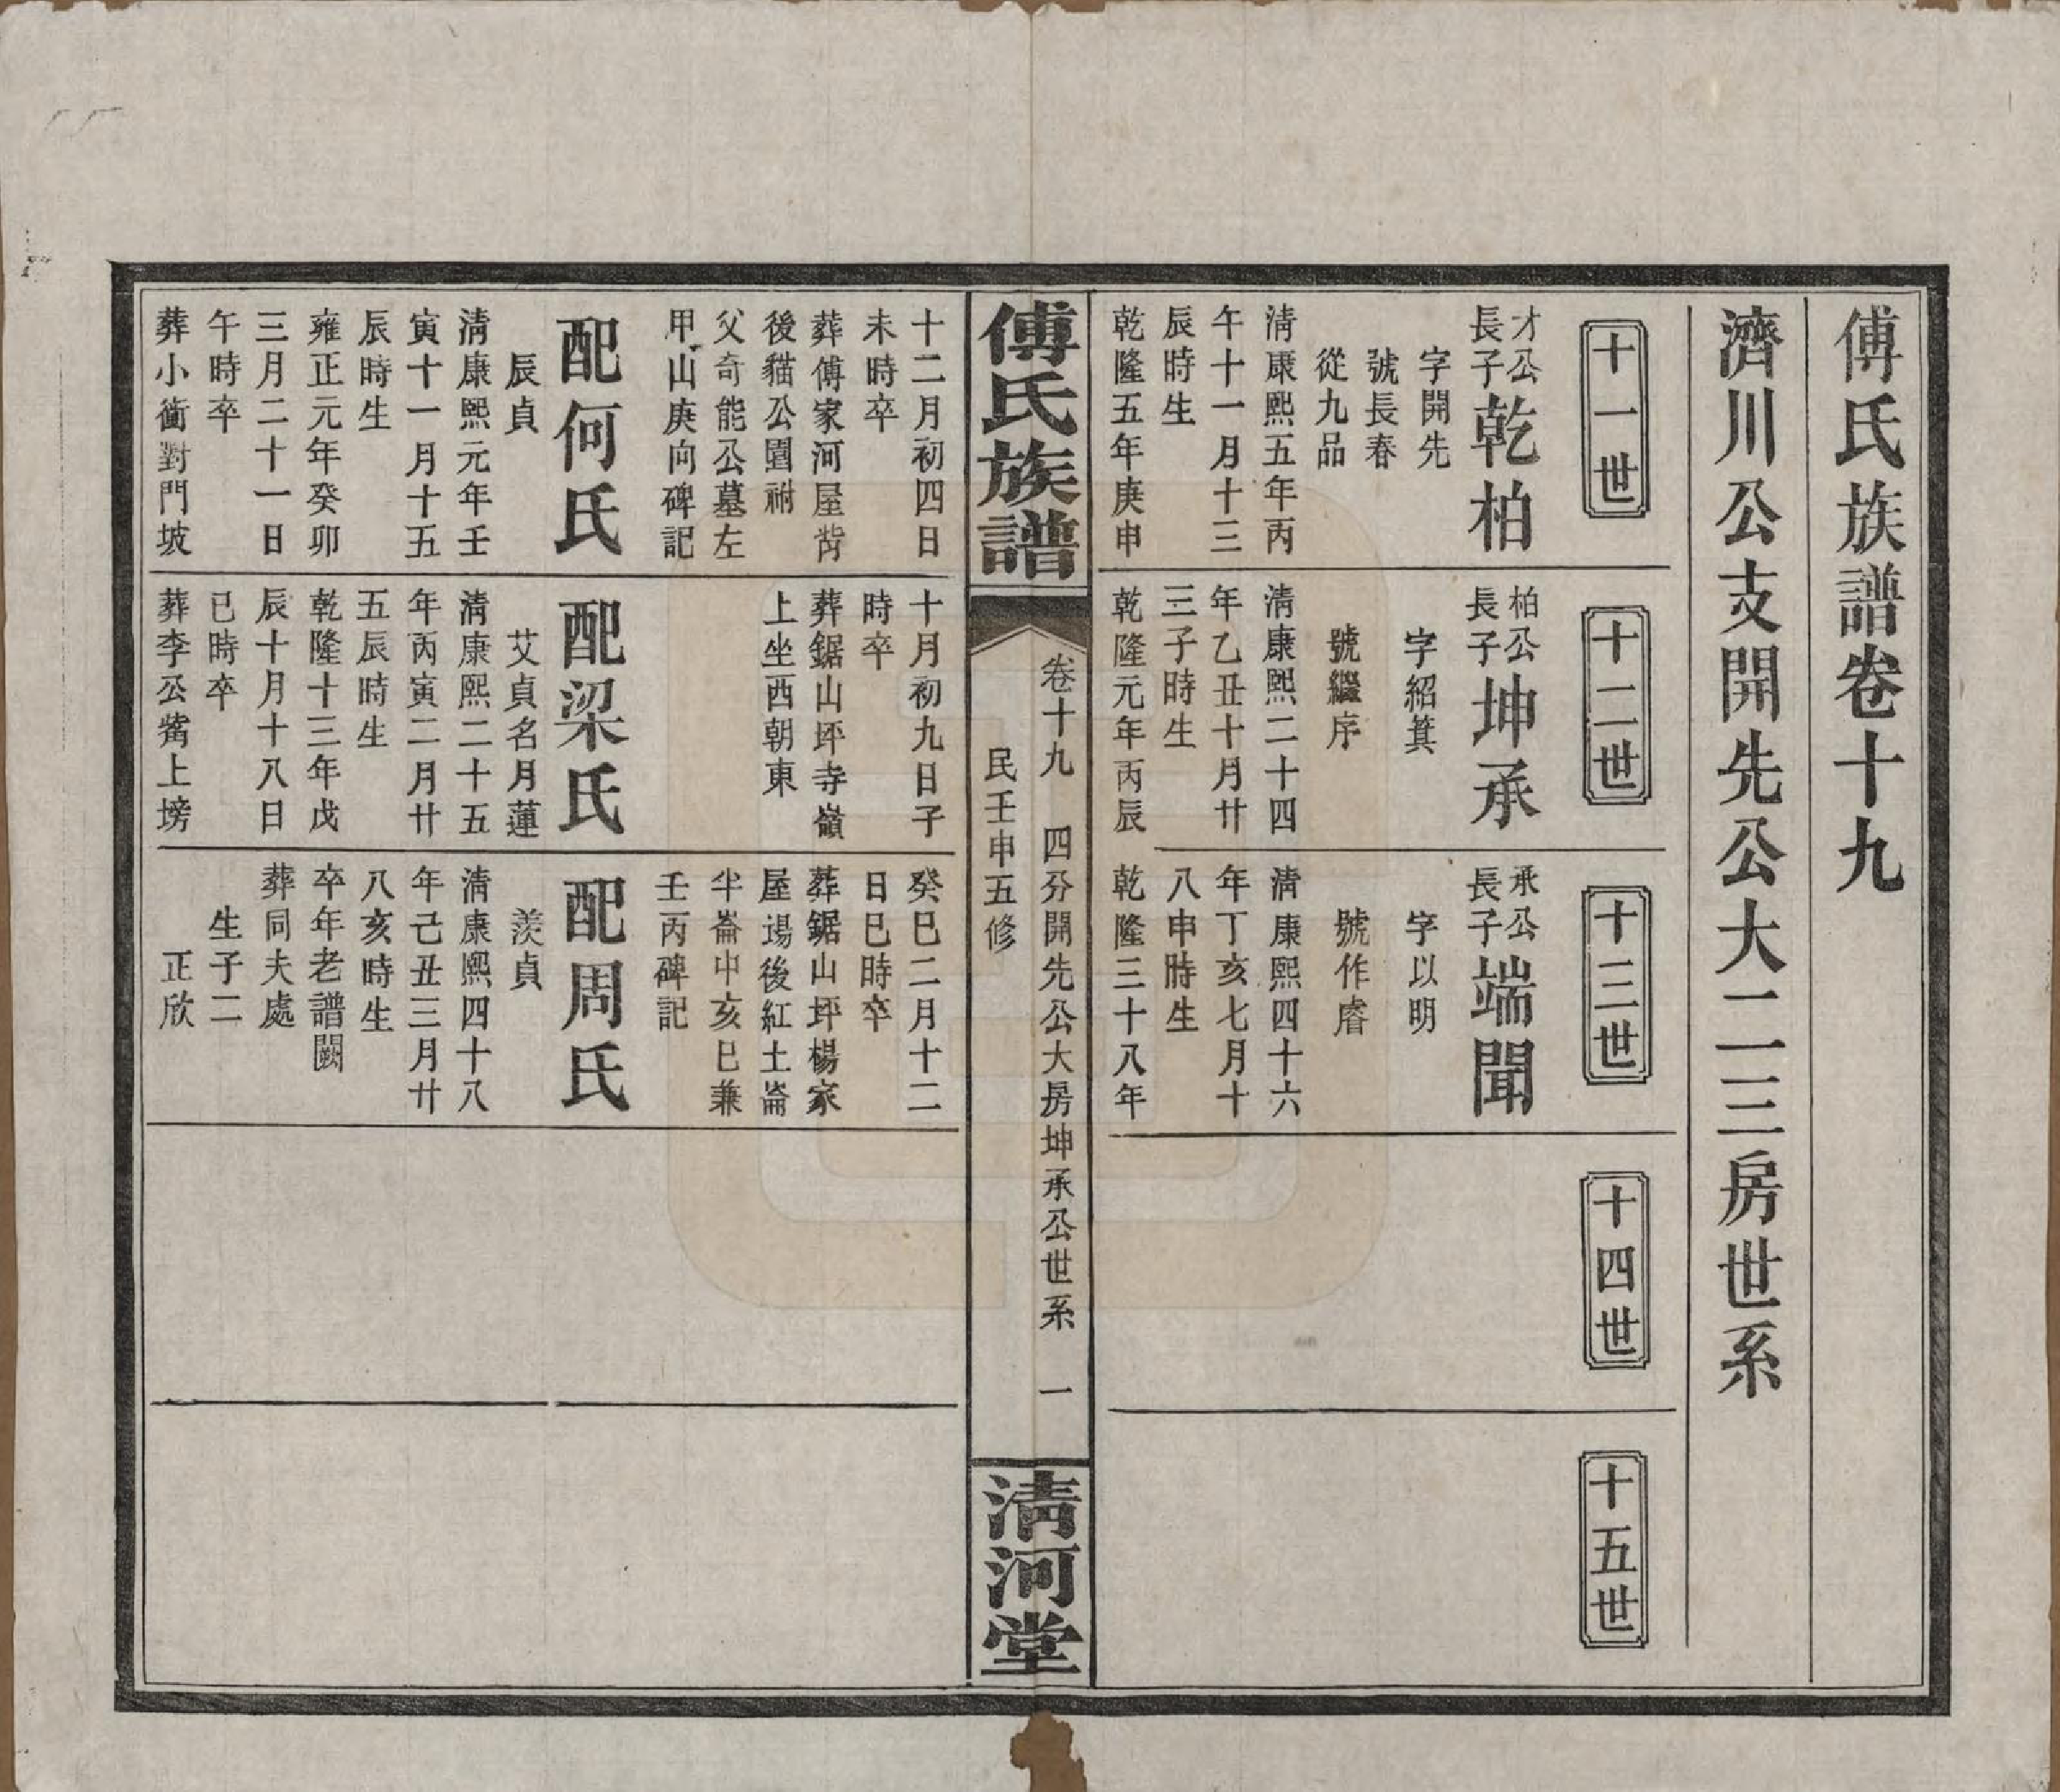 傅氏族譜卷十九
濟川公支開先公大二三房世系
十一世
才公
長子
乾柏
字開先
號長春
從九品
清康熙五年丙
午十一月十三
辰時生
乾隆五年庚申
十二世
柏公
長子
坤承
字紹箕
號繼序
清康熙二十四
年乙丑十月廿
三子時生
乾隆元年丙辰
十三世
承公
長子
端聞
字以明
號作睿
清康熙四十六
年丁亥七月十
八申時生
乾隆三十八年
十四世
十五世
傅氏族譜
卷十九 四分開先公大房坤承公世系 一
民壬申五修
清河堂
十二月初四日
未時卒
葬傅家河屋背
後貓公園祔
父奇能公墓左
甲山庚向碑記
配何氏
辰貞
清康熙元年壬
寅十一月十五
辰時生
雍正元年癸卯
三月二十一日
午時卒
葬小衝對門坡
十月初九日子
時卒
葬鋸山坪寺嶺
上坐西朝東
配梁氏
艾貞名月蓮
清康熙二十五
年丙寅二月廿
五辰時生
乾隆十三年戊
辰十月十八日
已時卒
葬李公觜上塝
癸巳二月十二
日巳時卒
葬鋸山坪楊家
屋場後紅土崙
半崙中亥巳兼
壬丙碑記
配周氏
羨貞
清康熙四十八
年己丑三月廿
八亥時生
卒年老譜闕
葬同夫處
生子二
正欣